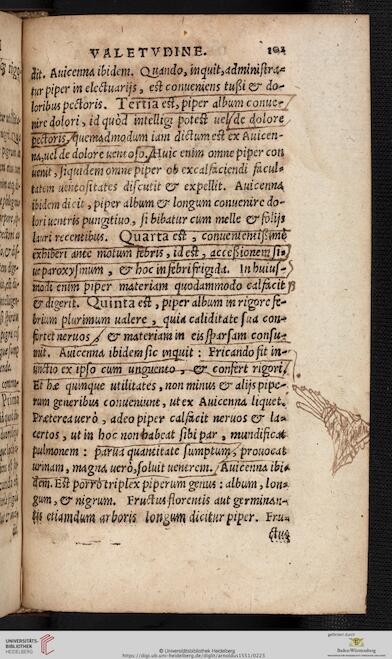 VALETVDINE. 102
dit. Auicenna ibidem. Quando, inquit, administra-
tur piper in electuarijs, est conueniens tußi & do-
loribus pectoris. Tertia est, piper album conue-
nire dolori, id quod intelligi potest uel de dolore
pectoris, quemadmodum iam dictum est ex Auicen-
na, uel de dolore uentoso. Huic enim omne piper con
uenit, siquidem omne piper ob excalfaciendi facul-
tatem uentositates discutit & expellit. Auicenna
ibidem dicit, piper album & longum conuenire do-
lori uentris pungitiuo, si bibatur cum melle & folijs
lauri recentibus. Quarta est, conuenientißimè
exhiberi ante motum febris, id est, accessionem si-
ue paroxysmum, & hoc in febri frigida. In huius-
modi enim piper materiam quodammodo calfacit
& digerit. Quinta est, piper album in rigore fe-
brium plurimum ualere, quia caliditate sua con-
fortet neruos, & materiam in eis sparsam consu-
mit. Auicenna ibidem sic inquit: Fricando fit in-
unctio ex ipso cum unguento, & confert rigori.
Et hæ quinque utilitates, non minus & alijs pipe-
rum generibus conueniunt, ut ex Auicenna liquet.
Præterea uerò, adeo piper calfacit neruos & la-
certos, ut in hoc non habeat sibi par, mundificat
pulmonem: parua quantitate sumptum, prouocat
urinam, magna uerò, soluit uentrem. Auicenna ibi-
dem. Est porrò triplex piperum genus: album, lon-
gum, & nigrum. Fructus florentis aut germinan-
tis etiamdum arboris longum dicitur piper. Fru-
ctus
UNIVERSITÄTS-
BIBLIOTHEK
HEIDELBERG
© Universitätsbibliothek Heidelberg
https://digi.ub.uni-heidelberg.de/diglit/arnoldus1551/0223
gefördert durch
Baden-Württemberg